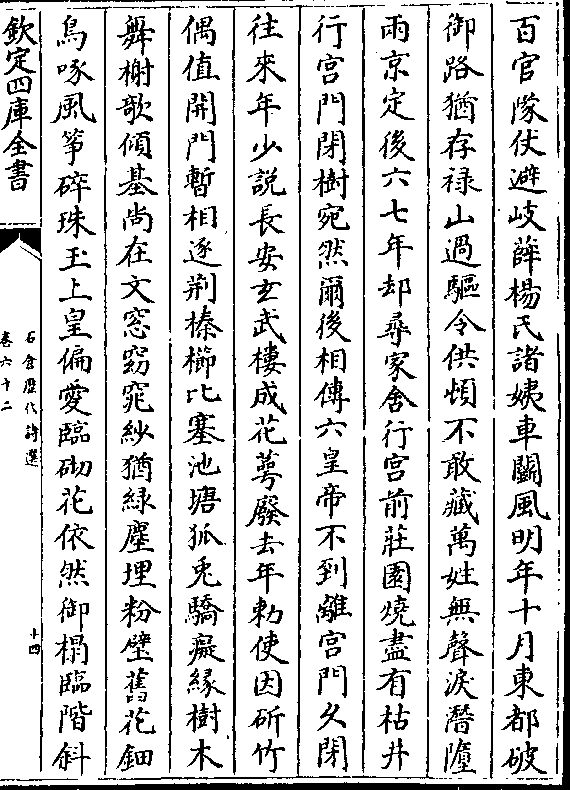 百官隊仗避岐薛楊氏諸姨車鬬風明年十月東都破
御路猶存祿山過驅令供頓不敢藏萬姓無聲淚潛墮
兩京定後六七年却尋家舍行宫前莊園燒盡有枯井
行宫門閉樹宛然爾後相傳六皇帝不到離宫門久閉
往來年少說長安玄武樓成花萼廢去年勅使因斫竹
偶值開門暫相逐荆榛櫛比塞池塘狐兎驕癡緣樹木
舞榭歌傾基尚在文窓窈窕紗猶緑塵埋粉壁舊花鈿
鳥啄風筝碎珠玉上皇偏愛臨砌花依然御榻臨階斜
欽定四庫全書
石倉歷代詩選
卷六十二
十四